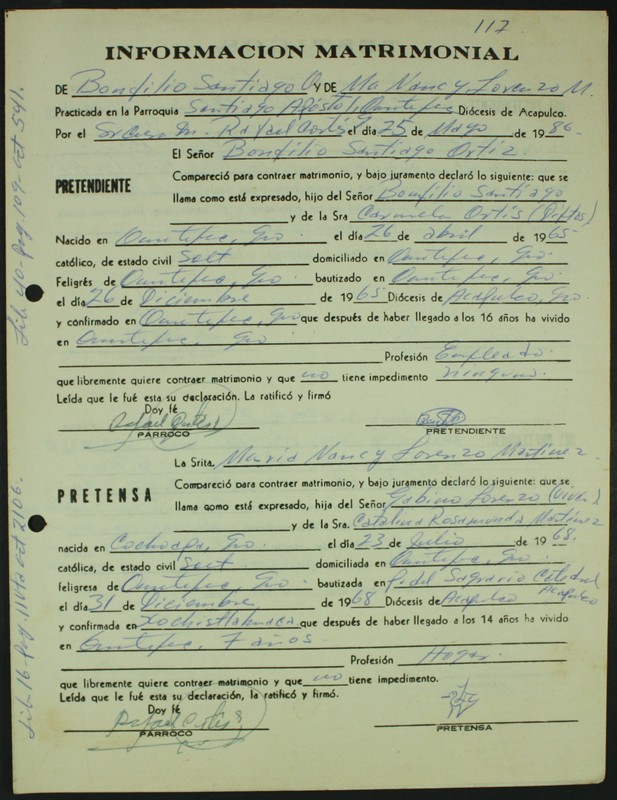 117
INFORMACION MATRIMONIAL
DE Bonfilio Santiago O. Y DE Ma Nancy Lorenzo M.
Practicada en la Parroquia Santiago Apóstol, Diócesis de Acapulco.
Por el Sr Cura Dn. Rafael Cortés el día 25 de Mayo de 1986.
El Señor Bonfilio Santiago Ortiz.
PRETENDIENTE
Compareció para contraer matrimonio, y bajo juramento declaró lo siguiente: que se
llama como está expresado, hijo del Señor Bonfilio Santiago
y de la Sra Carmela Ortís (Diftos)
Nacido en Gro. el día 26 de abril de 1965
católico, de estado civil Solt domiciliado en Gro.
Feligrés de Gro. bautizado en Gro.
el día 26 de Diciembre de 1965 Diócesis de Acapulco, Gro.
y confirmado en Gro que después de haber llegado a los 16 años ha vivido
en Gro
Profesión Empleado.
que libremente quiere contraer matrimonio y que no tiene impedimento ninguno.
Leída que le fué esta su declaración. La ratificó y firmó
Doy fé
PARROCO
PRETENDIENTE
La Srita. María Nancy Lorenzo Martínez.
PRETENSA
Compareció para contraer matrimonio, y bajo juramento declaró lo siguiente: que se
llama como está expresado, hija del Señor Gabino Lorenzo (Viven)
y de la Sra. Catalina Rosamunda Martínez
nacida en Cochoapa, Gro. el día 23 de Julio de 1968.
católica, de estado civil Solt domiciliada en Gro.
feligresa de Gro bautizada en P. del Sagrario Catedral Acapulco
el día 31 de Diciembre de 1968 Diócesis de Acapulco
y confirmada en Xochistlahuaca que después de haber llegado a los 14 años ha vivido
en 7 años.
Profesión Hogar.
que libremente quiere contraer matrimonio y que no tiene impedimento.
Leída que le fué esta su declaración, la ratificó y firmó.
Doy fé
PARROCO
PRETENSA
Lib 40. Pag. 109. Act 541.
Lib 16. Pag. 114 Act 2106.